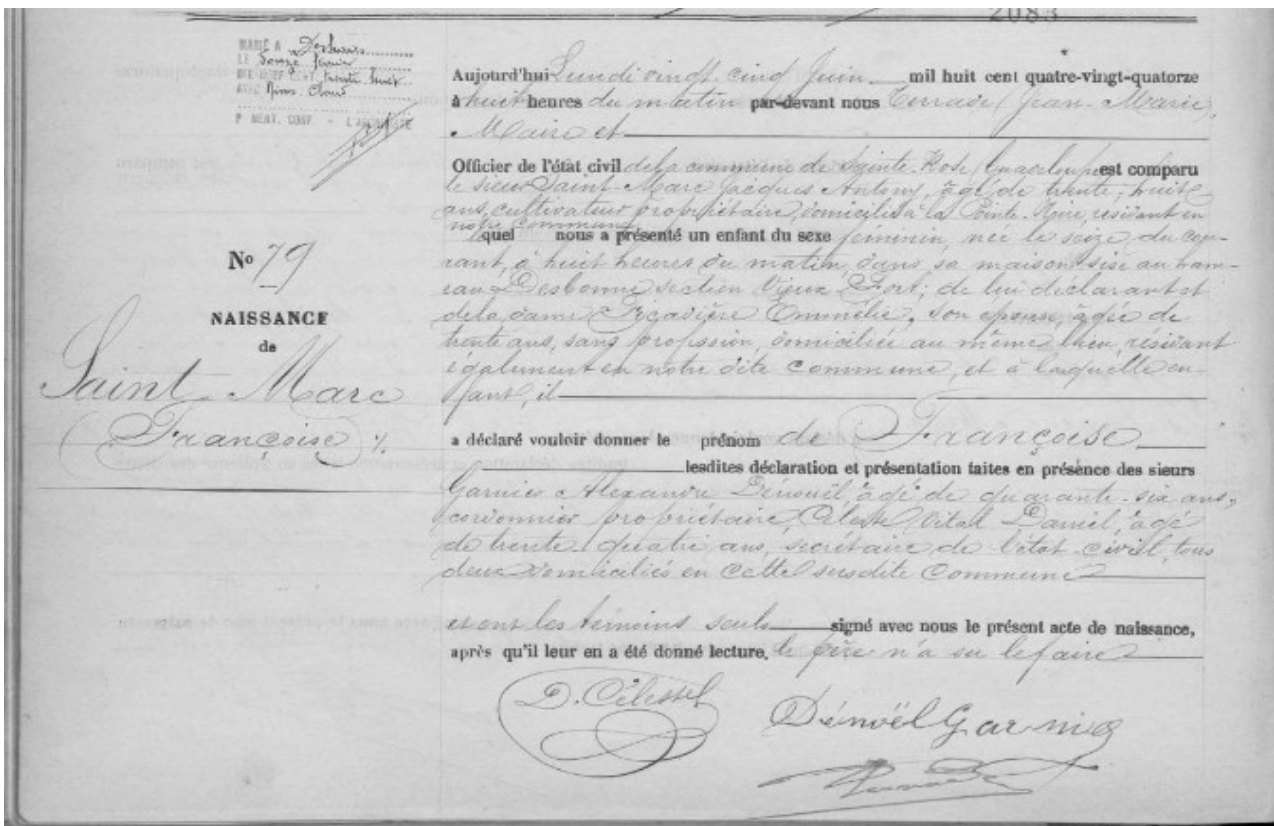 2083
MARIÉ A Deshaies
LE Douze Janvier
MIL NEUF CENT trente huit
AVEC Nims Cloud
P MENT. CONF. - L'ARCHIVISTE
Aujourd'hui Lundi vingt cinq Juin mil huit cent quatre-vingt-quatorze
à huit heures du matin par-devant nous Terrade (Jean-Marie)
Maire et
Officier de l'état civil de la commune de Sainte Rose (Guadeloupe) est comparu
le sieur Saint-Marc Jacques Antony, âgé de trente-huit
ans, cultivateur propriétaire, domicilié à la Pointe-Noire, résidant en
notre commune
quel nous a présenté un enfant du sexe féminin, née le seize du cou-
rant, à huit heures du matin, dans sa maison sise au ham-
eau Desbonne section Vieux Fort; de lui déclarant et
de la dame Ficadière Emmélie, son épouse, âgée de
trente ans, sans profession, domiciliée au même lieu, résidant
également en notre dite commune, et à laquelle en-
fant, il
No 79
NAISSANCE
de
Saint-Marc
(Françoise)
a déclaré vouloir donner le prénom de Françoise
lesdites déclaration et présentation faites en présence des sieurs
Garnier Alexandre Dénouël, âgé de quarante-six ans,
cordonnier propriétaire, Céleste Vital Daniel, âgé
de trente quatre ans, secrétaire de l'état civil, tous
deux domiciliés en cette susdite Commune
et ont les témoins seuls signé avec nous le présent acte de naissance,
après qu'il leur en a été donné lecture. le père n'a su le faire
D. Céleste
Dénoël Garnier